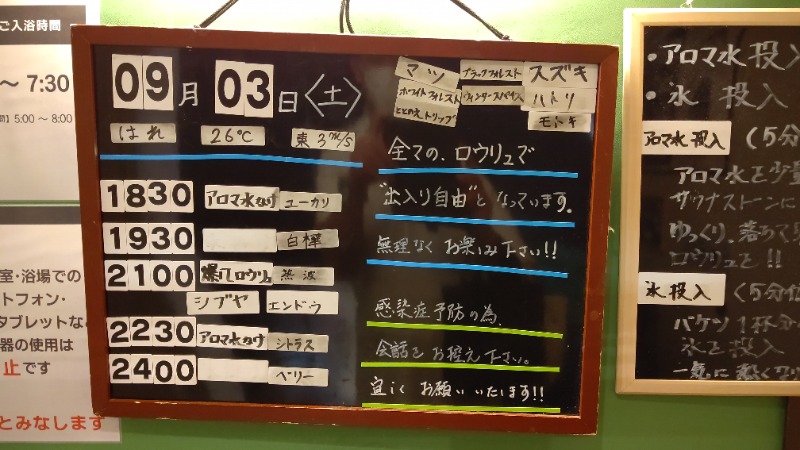 ご入浴時間
～ 7:30
5:00 ～ 8:00
室・浴場での
トフォン・
タブレットな
器の使用は
止です
とみなします
09月03日〈土〉
はれ 26℃ 東3m/s
1830 アロマ水かけ ユーカリ
1930 白樺
2100 爆風ロウリュ 熱波
シブヤ エンドウ
2230 アロマ水かけ シトラス
2400 ベリー
マツ ブラックフォレスト スズキ
ホワイトフォレスト ハトリ
モトキ
全ての、ロウリュで
"出入り自由"となっています。
無理なくお楽しみ下さい!!
感染症予防の為、
会話をお控え下さい。
宜しくお願いいたします!!
・アロマ水投入
・氷 投入
アロマ水投入 (5分
アロマ水を少量
サウナストーンに
ゆっくり、落
ロウリュを!!
氷投入 (5分
バケツ1杯分
氷を投入
一気に熱く